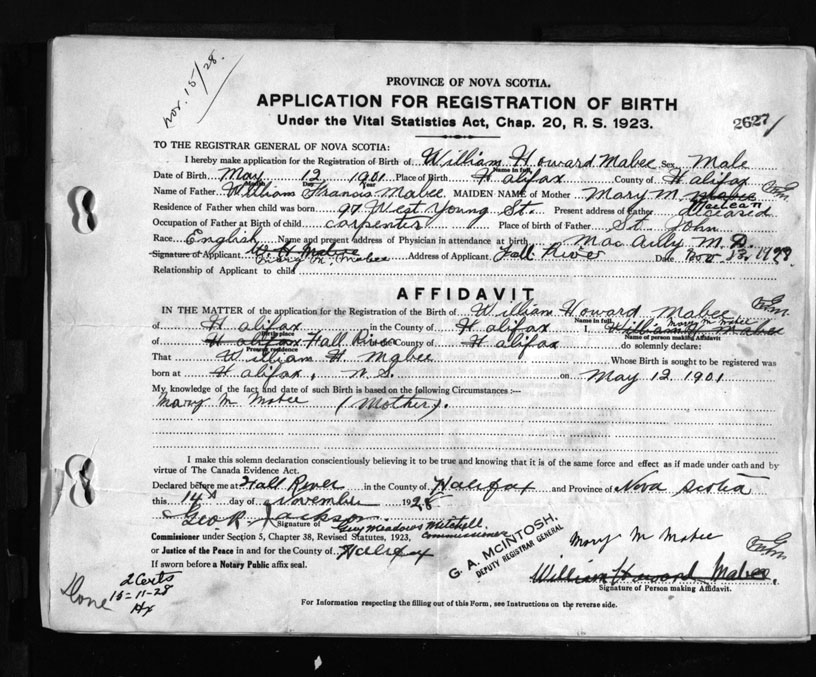 Nov. 15/28.
PROVINCE OF NOVA SCOTIA.
APPLICATION FOR REGISTRATION OF BIRTH
Under the Vital Statistics Act, Chap. 20, R. S. 1923.
2627
TO THE REGISTRAR GENERAL OF NOVA SCOTIA:
I hereby make application for the Registration of Birth of William Howard Mabee Sex Male
Name in full
Date of Birth May 12 1901 Place of Birth Halifax County of Halifax
Month Day Year
Name of Father William Francis Mabee MAIDEN NAME of Mother Mary M. Mabee
MacLean
Residence of Father when child was born 97 West Young St. Present address of Father deceased
Occupation of Father at Birth of child carpenter Place of birth of Father St. John
Race English Name and present address of Physician in attendance at birth M. D.
Signature of Applicant W H Mabee Address of Applicant Fall River Date Nov 13, 1928
Mary M. Mabee
Relationship of Applicant to child
AFFIDAVIT
IN THE MATTER of the application for the Registration of the Birth of William Howard Mabee
Name in full
Mary M Mabee
of Halifax in the County of Halifax I William H Mabee
Birth place Name of person making Affidavit
of Halifax Fall River County of Halifax do solemnly declare:
Present residence
That William H Mabee Whose Birth is sought to be registered was
born at Halifax, N.S. on May 12 1901
My knowledge of the fact and date of such Birth is based on the following Circumstances :—
Mary M Mabee (Mother).
I make this solemn declaration conscientiously believing it to be true and knowing that it is of the same force and effect as if made under oath and by
virtue of The Canada Evidence Act.
Declared before me at Fall River in the County of Halifax and Province of Nova Scotia
this 14 day of November 1928
Geo R. Jackson
Signature of Guy Meadows Mitchell.
Commissioner under Section 5, Chapter 38, Revised Statutes, 1923, Commissioner
or Justice of the Peace in and for the County of Halifax
If sworn before a Notary Public affix seal.
G. A. McINTOSH,
DEPUTY REGISTRAR GENERAL
Mary M Mabee
William Howard Mabee.
Signature of Person making Affidavit.
Done 2 Certs
15-11-28
Hx
For Information respecting the filling out of this Form, see Instructions on the reverse side.